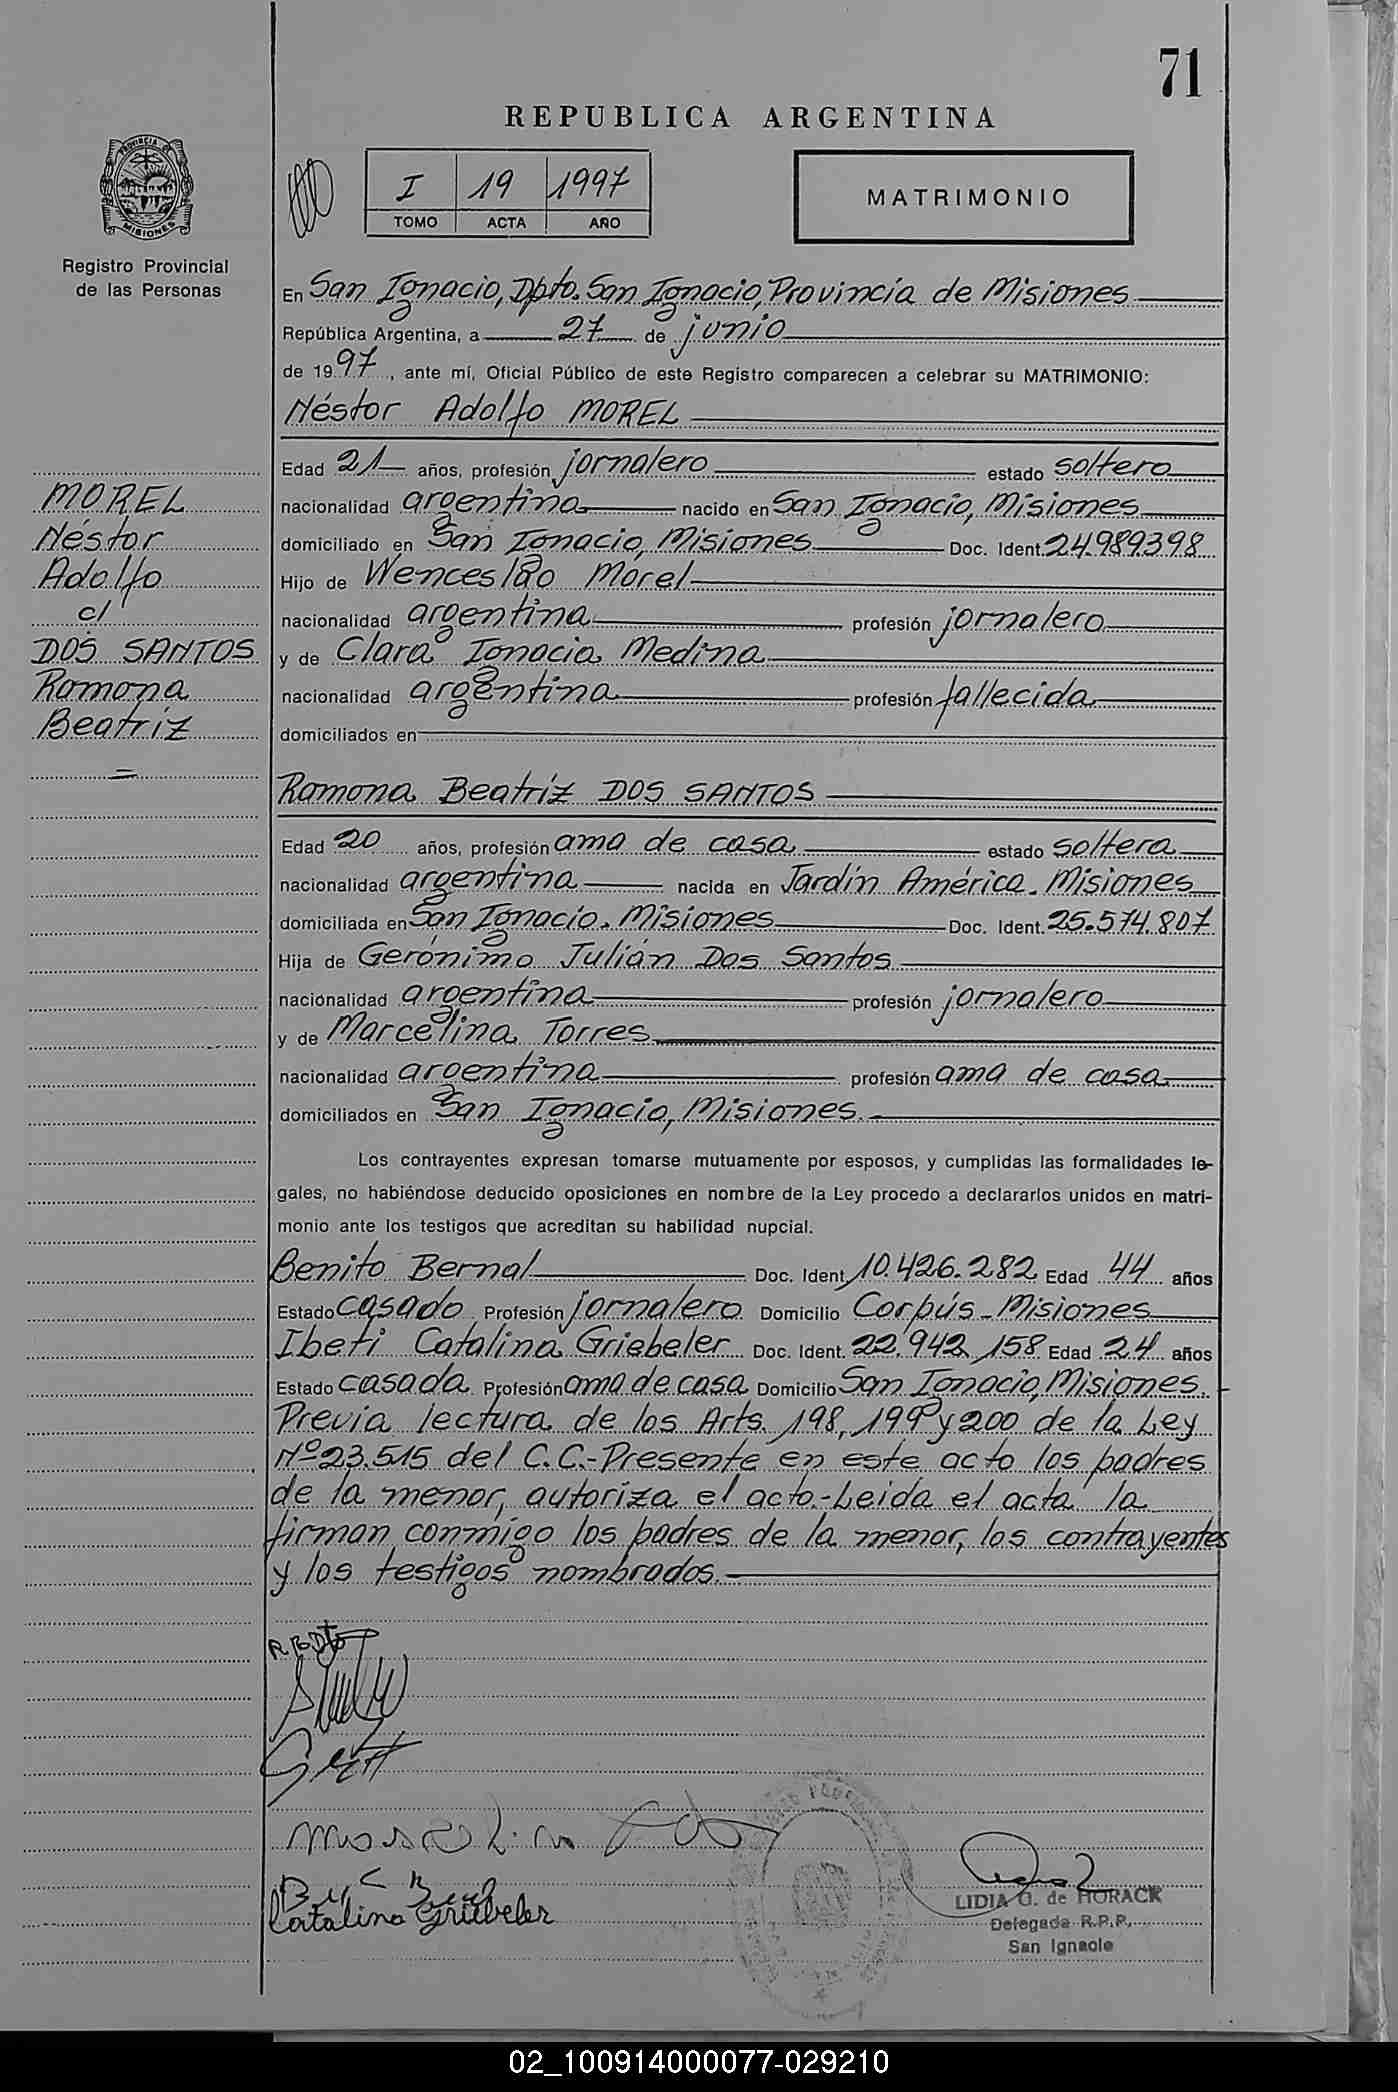 71
REPUBLICA ARGENTINA
PROVINCIA DE
MISIONES
Registro Provincial
de las Personas
I 19 1997
TOMO ACTA AÑO
MATRIMONIO
En San Ignacio, Dpto. San Ignacio, Provincia de Misiones
República Argentina, a 27 de junio
de 1997, ante mí, Oficial Público de este Registro comparecen a celebrar su MATRIMONIO:
Néstor Adolfo MOREL
Edad 21 años, profesión jornalero estado soltero
nacionalidad argentina nacido en San Ignacio, Misiones
domiciliado en San Ignacio, Misiones Doc. Ident. 24.989.398
Hijo de Wenceslao Morel
nacionalidad argentina profesión jornalero
y de Clara Ignacia Medina
nacionalidad argentina profesión fallecida
domiciliados en
MOREL
Néstor
Adolfo
c/
DOS SANTOS
Ramona
Beatríz
=
Ramona Beatríz DOS SANTOS
Edad 20 años, profesión ama de casa estado soltera
nacionalidad argentina nacida en Jardín América, Misiones
domiciliada en San Ignacio, Misiones Doc. Ident. 25.574.807
Hija de Gerónimo Julián Dos Santos
nacionalidad argentina profesión jornalero
y de Marcelina Torres
nacionalidad argentina profesión ama de casa
domiciliados en San Ignacio, Misiones.
Los contrayentes expresan tomarse mutuamente por esposos, y cumplidas las formalidades le-
gales, no habiéndose deducido oposiciones en nombre de la Ley procedo a declararlos unidos en matri-
monio ante los testigos que acreditan su habilidad nupcial.
Benito Bernal Doc. Ident. 10.426.282 Edad 44 años
Estado casado Profesión jornalero Domicilio Corpús-Misiones
Ibeti Catalina Griebeler Doc. Ident. 22.942.158 Edad 24 años
Estado casada Profesión ama de casa Domicilio San Ignacio, Misiones.-
Previa lectura de los Arts. 198, 199 y 200 de la Ley
Nº 23.515 del C.C.-Presente en este acto los padres
de la menor, autoriza el acto.-Leida el acta la
firman conmigo los padres de la menor, los contrayentes
y los testigos nombrados.
Catalina Griebeler
LIDIA G. de HORACK
Delegada R.P.P.
San Ignacio
02_100914000077-029210